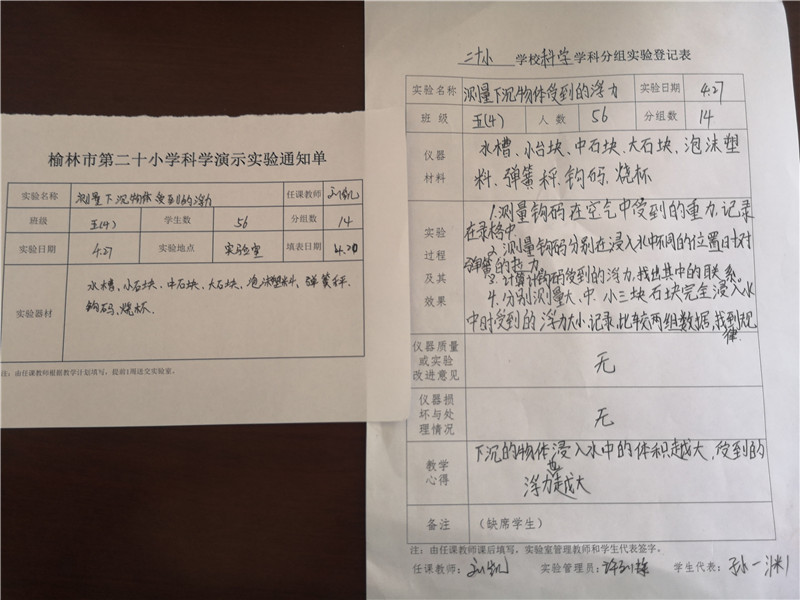 榆林市第二十小学科学演示实验通知单
实验名称 测量下沉物体受到的浮力 任课教师 刘凯
班级 五(4) 学生数 56 分组数 14
实验日期 4.27 实验地点 实验室 填表日期 4.20
实验器材 水槽、小石块、中石块、大石块、泡沫塑料、弹簧秤、
钩码、烧杯.
注：由任课教师根据教学计划填写，提前1周送交实验室。
二十小 学校 科学 学科分组实验登记表
实验名称 测量下沉物体受到的浮力 实验日期 4.27
班 级 五(4) 人 数 56 分组数 14
仪器材料 水槽、小石块、中石块、大石块、泡沫塑
料、弹簧秤、钩码、烧杯
实验过程及其效果 1.测量钩码在空气中受到的重力,记录
在表格中
2.测量钩码分别在浸入水中不同的位置时对
弹簧的拉力
3.计算计钩码受到的浮力,找出其中的联系。
4.分别测量大、中、小三块石块完全浸入水
中时受到的浮力大小.记录,比较两组数据,找到规
律.
仪器质量或实验改进意见 无
仪器损坏与处理情况 无
教学心得 下沉的物体浸入水中的体积越大,受到的
浮力也越大
备注 （缺席学生）
注：由任课教师课后填写，实验室管理教师和学生代表签字。
任课教师：刘凯 实验管理员： 学生代表：孙一